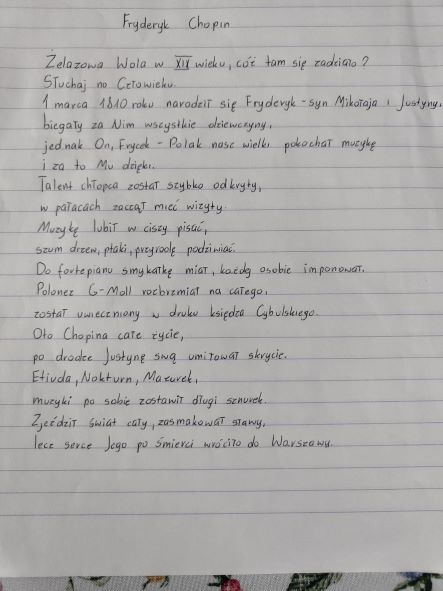 Fryderyk Chopin
Żelazowa Wola w XIX wieku, cóż tam się zadziało?
Słuchaj no Człowieku.
1 marca 1810 roku narodził się Fryderyk - syn Mikołaja i Justyny,
biegały za Nim wszystkie dziewczyny,
jednak On, Frycek - Polak nasz wielki pokochał muzykę
i za to Mu dzięki.
Talent chłopca został szybko odkryty,
w pałacach zaczął mieć wizyty.
Muzykę lubił w ciszy pisać,
szum drzew, ptaki, przyrodę podziwiać.
Do fortepianu smykałkę miał, każdej osobie imponował.
Polonez G-Moll rozbrzmiał na całego,
został uwieczniony w druku księdza Cybulskiego.
Oto Chopina całe życie,
po drodze Justynę swą umiłował skrycie.
Etiuda, Nokturn, Mazurek,
muzyki po sobie zostawił długi sznurek.
Zjeździł świat cały, zasmakował sławy,
lecz serce Jego po śmierci wróciło do Warszawy.